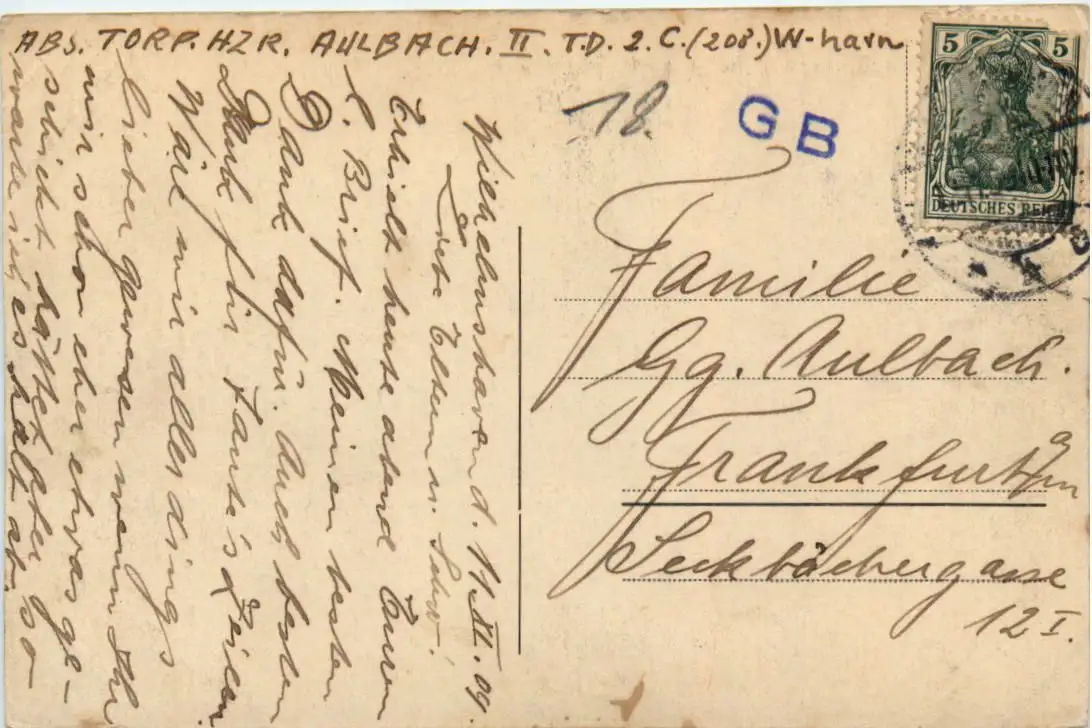 ABS. TORP. HZR. AULBACH. II. T.D. 2. C. (208.) W-havn
5 5
DEUTSCHES REICH
18.
GB
Familie
Gg. Aulbach.
Frankfurt a/m
Seckbächergasse
12 I.
Wilhelmshaven d. 11.XI.09.
Liebe Eltern u. Schw.!
Erhielt heute abend Euren
l. Brief. Meinen besten
Dank dafür. Auch besten
Dank für Tante's Zeilen.
Wäre mir allerdings
lieber gewesen wenn Ihr
mir schon eher etwas ge-
schickt hättet aber so
warte ich es halt ab.